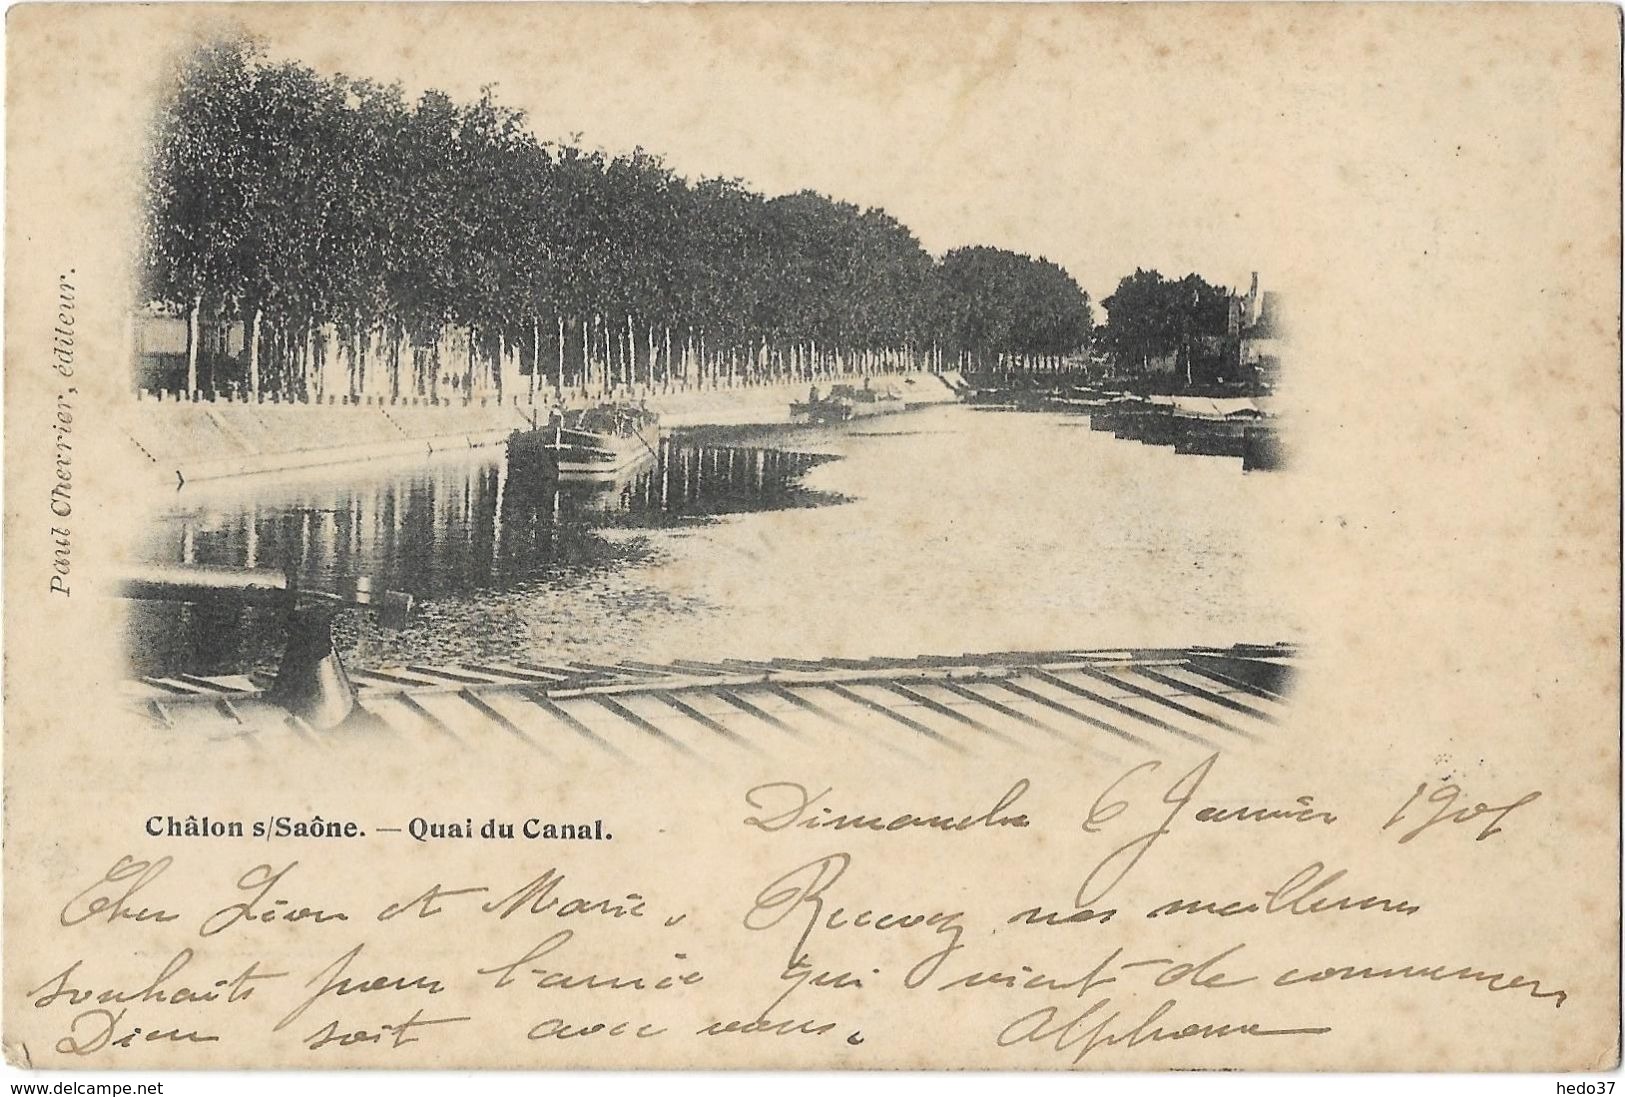 Paul Cherrier, éditeur.
Châlon s/Saône. — Quai du Canal.
Dimanche 6 Janvier 1901
Cher Léon et Marie, Recevez nos meilleures
souhaits pour l'année qui vient de commencer,
Dieu soit avec vous. Alphonse
www.delcampe.net
hedo37